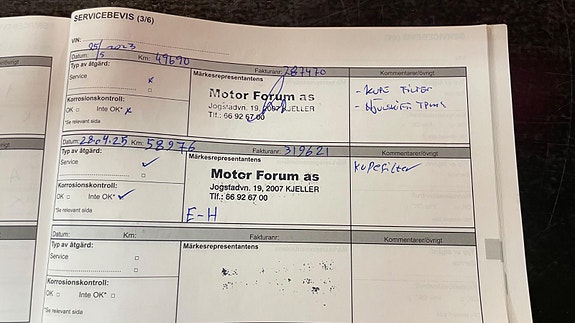 SERVICEBEVIS (3/6)
VIN:
Datum: 25/5 2023 Km: 49690 Fakturanr: 287470 Kommentarer/övrigt
Typ av åtgärd: Märkesrepresentantens
Service x
Motor Forum as
Jogstadvn. 19, 2007 KJELLER
Tlf.: 66 92 67 00
- KUPE FILTER
- HJULSKIFT TPMS
Korrosionskontroll:
OK □ Inte OK* x
*Se relevant sida
Datum: 28.04.25 Km: 58976 Fakturanr: 319621 Kommentarer/övrigt
Typ av åtgärd: Märkesrepresentantens
Service ✓
Motor Forum as
Jogstadvn. 19, 2007 KJELLER
Tlf.: 66 92 67 00
Kupefilter
Korrosionskontroll:
OK □ Inte OK* ✓
E-H
*Se relevant sida
Datum: Km: Fakturanr: Kommentarer/övrigt
Typ av åtgärd: Märkesrepresentantens
Service □
Korrosionskontroll:
OK □ Inte OK* □
*Se relevant sida